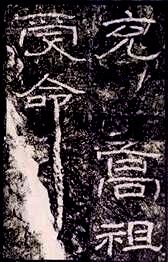 充高祖
受命